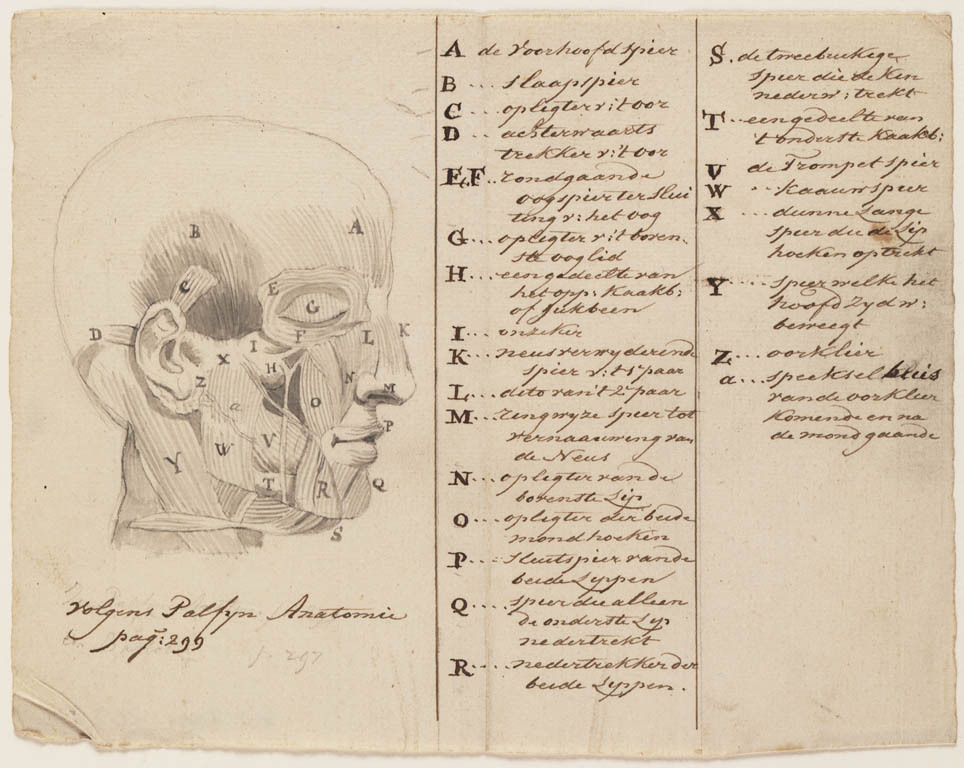 A de Voorhoofd spier
B ... slaapspier
C ... opligter v: 't oor
D .. achterwaarts
trekker v: 't oor
E, F .. rondgaande
oogspier ter slui
ting v: het oog
G ... opligter v: 't boven-
ste ooglid
H ... een gedeelte van
het opp: Kaakb:
of Jukbeen
I ... onzeker
K ... neusverwyderende
spier v: 't 1e paar
L ... dito van 't 2e paar
M ... ringwyze spier tot
vernaauwing van
de Neus
N ... opligter van de
bovenste Lip
O ... opligter der beide
mondhoeken
P ... sluitspier van de
beide Lippen
Q ... spier die alleen
de onderste Lip
nedertrekt
R .... nedertrekker der
beide Lippen.
S . de tweebuikege
spier die de Ken
nederw: trekt
T .. een gedeelte van
't onderste Kaakb:
V de Trompet spier
W .. Kaauwspier
X ... dunne Lange
spier die de Lip
hoeken optrekt
Y .... spier welke het
hoofd Zyd w:
beweegt
Z ... oorklier
a ... speekselbuis
van de oorklier
Komende en na
de mond gaande
A
B
C
D
E
G
F
L
K
I
X
H
N
M
Z
a
O
P
W
V
Y
T
R
Q
S
volgens Palfyn Anatomie
pag: 299
p. 297